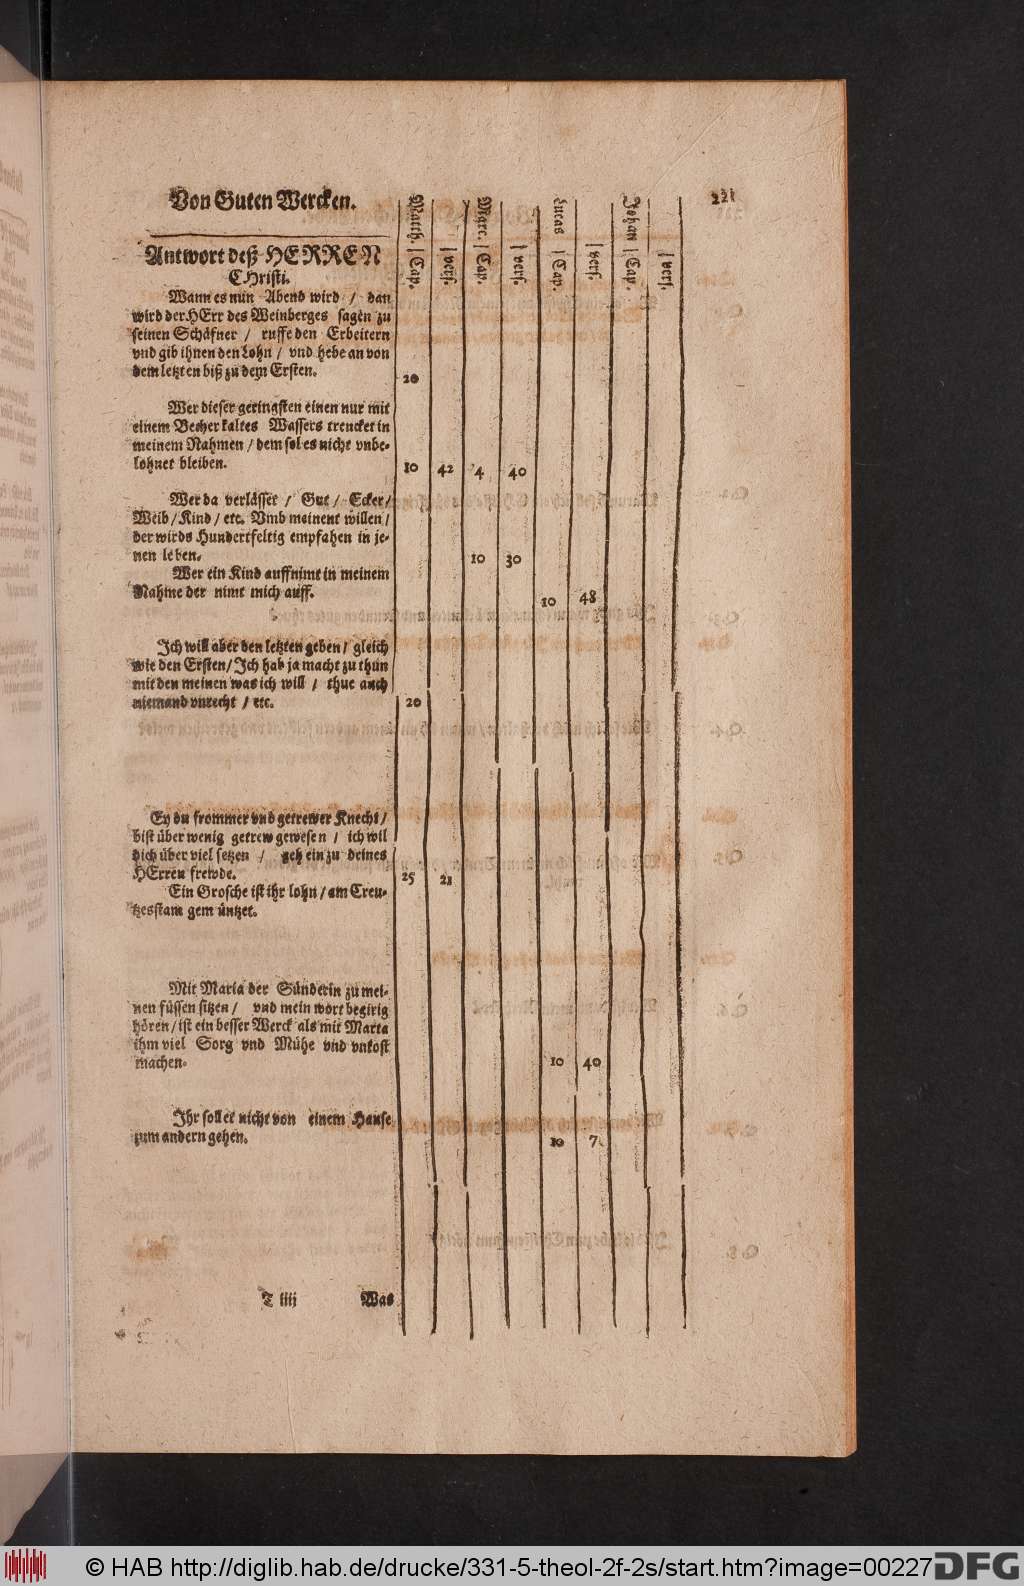 Von Guten Wercken.
Matth. | Cap.
| vers.
Marc. | Cap.
| vers.
Lucas | Cap.
| vers.
Johan | Cap.
| vers.
221
Antwort deß HERREN
CHristi.
Wann es nun Abend wird / dan
wird der HErr des Weinberges sagen zu
seinen Schäfner / ruffe den Erbeitern
vnd gib ihnen den Lohn / vnd hebe an von
dem letzten biß zu dem Ersten.
20
Wer dieser geringsten einen nur mit
einem Becher kaltes Wassers trencket in
meinem Nahmen / dem sol es nicht vnbe-
lohnet bleiben.
10 42 4 40
Wer da verlässet / Gut / Ecker /
Weib / Kind / etc. Vmb meinent willen /
der wirds Hundertfeltig empfahen in je-
nen leben.
10 30
Wer ein Kind auffnimt in meinem
Nahme der nimt mich auff.
10 48
Ich will aber den letzten geben / gleich
wie den Ersten / Ich hab ja macht zu thun
mit den meinen was ich will / thue auch
niemand vnrecht / etc.
20
Ey du frommer vnd getrewer Knecht /
bist über wenig getrew gewesen / ich wil
dich über viel setzen / geh ein zu deines
HErren frewde.
25 21
Ein Grosche ist ihr lohn / am Creu-
tzesstam gem üntzet.
Mit Maria der Sünderin zu mei-
nen füssen sitzen / vnd mein wort begirig
hören / ist ein besser Werck als mit Marta
ihm viel Sorg vnd Mühe vnd vnkost
machen.
10 40
Ihr sollet nicht von einem Hause
zum andern gehen.
10 7
T iiij
Was
© HAB http://diglib.hab.de/drucke/331-5-theol-2f-2s/start.htm?image=00227
DFG